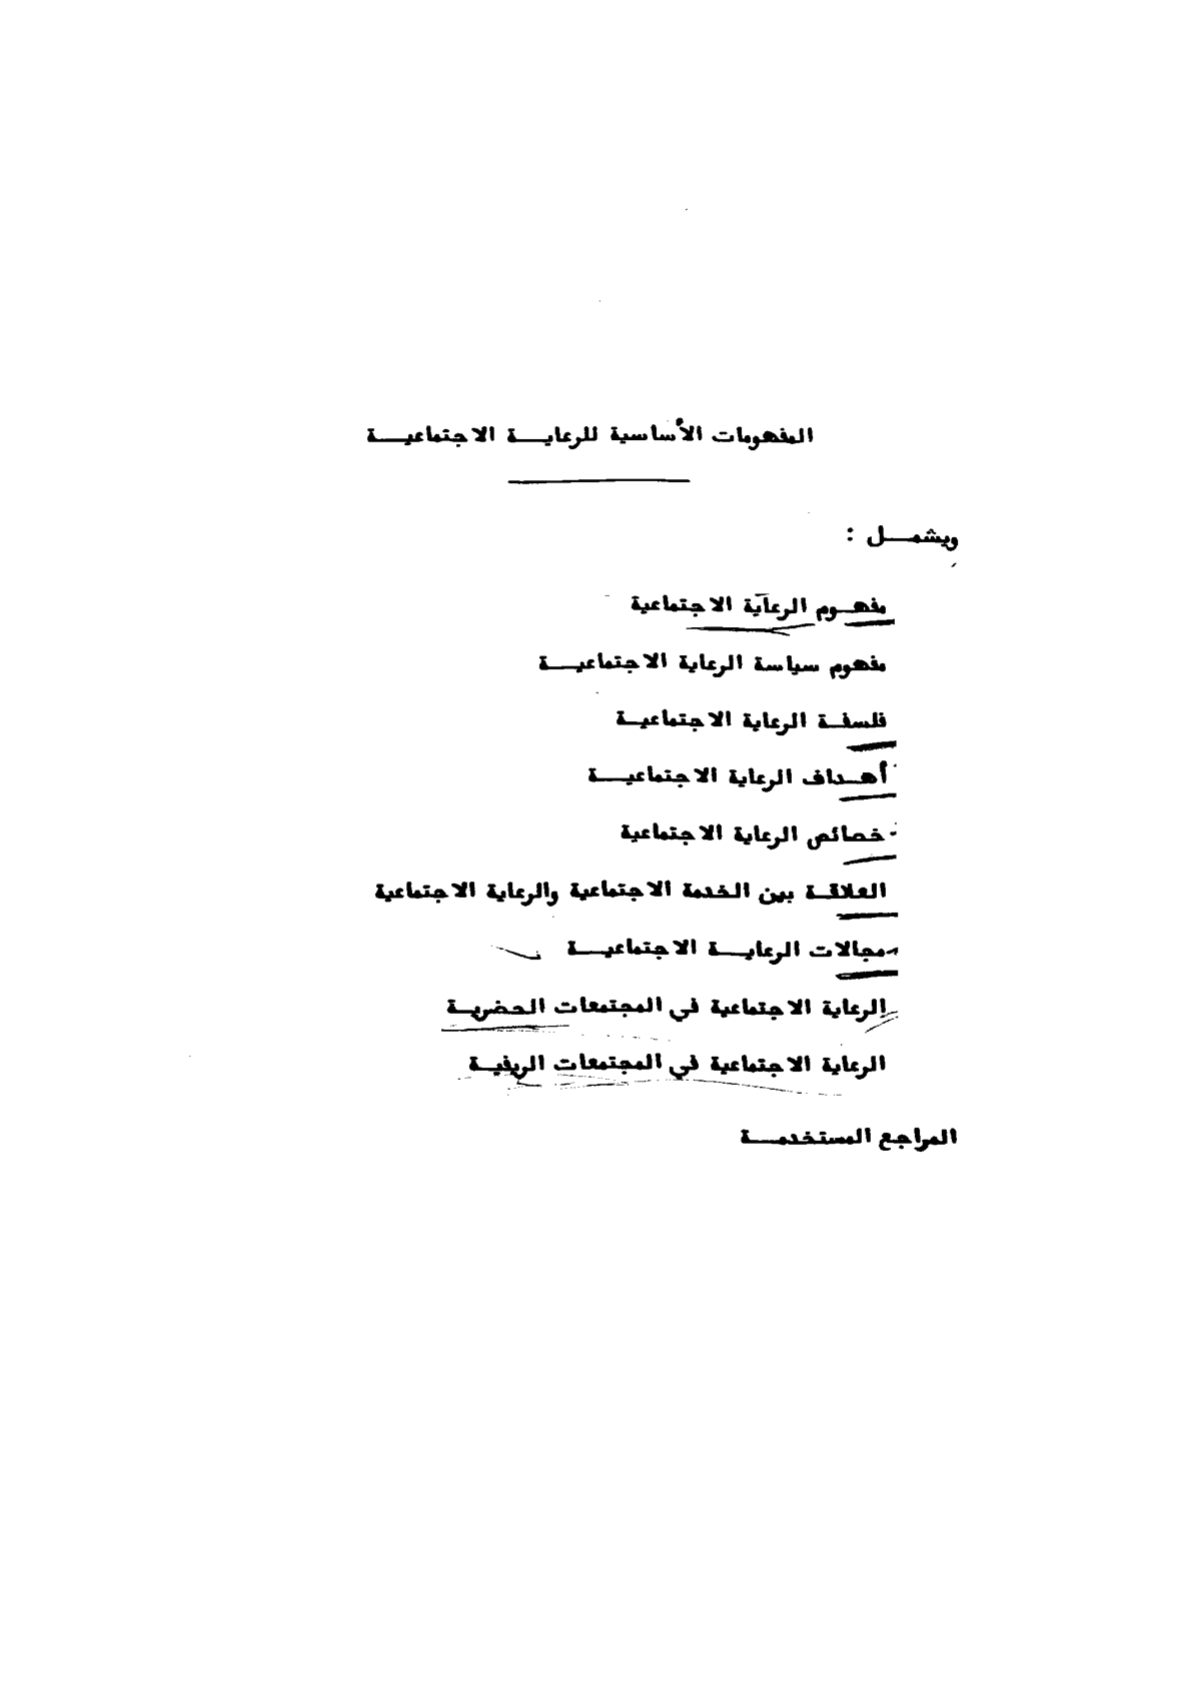 المفهومات الأساسية للرعايــة الاجتماعيــة
ويشمــل :
مفهــوم الرعاية الاجتماعية
مفهوم سياسة الرعاية الاجتماعيــة
فلسفــة الرعاية الاجتماعيــة
أهــداف الرعاية الاجتماعيــة
- خصائص الرعاية الاجتماعية
العلاقــة بين الخدمة الاجتماعية والرعاية الاجتماعية
- مجالات الرعايــة الاجتماعيــة
الرعاية الاجتماعية في المجتمعات الحضريــة
الرعاية الاجتماعية في المجتمعات الريفيــة
المراجع المستخدمــة